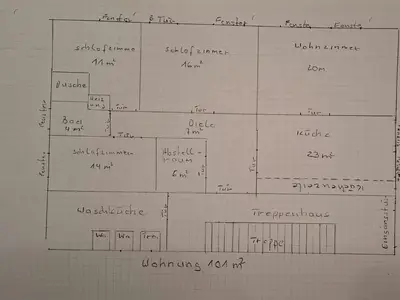 Fenster B. Tür Fenster Fenster Fenster
Schlafzimme Schlafzimmer Wohnzimmer
11 m² 16 m² 20m
Dusche
Tür Tür Tür
Bad Diele
4 m² 7 m²
Küche
Fenster
Tür
23 m²
Schlafzimmer Abstell-
raum
Fenster
14 m² 6 m²
Tür
Tür
Küchenzeile
Waschküche Treppenhaus
Tür
Eingangstür
Wa Wa Tro
Treppe
Wohnung 101 m²